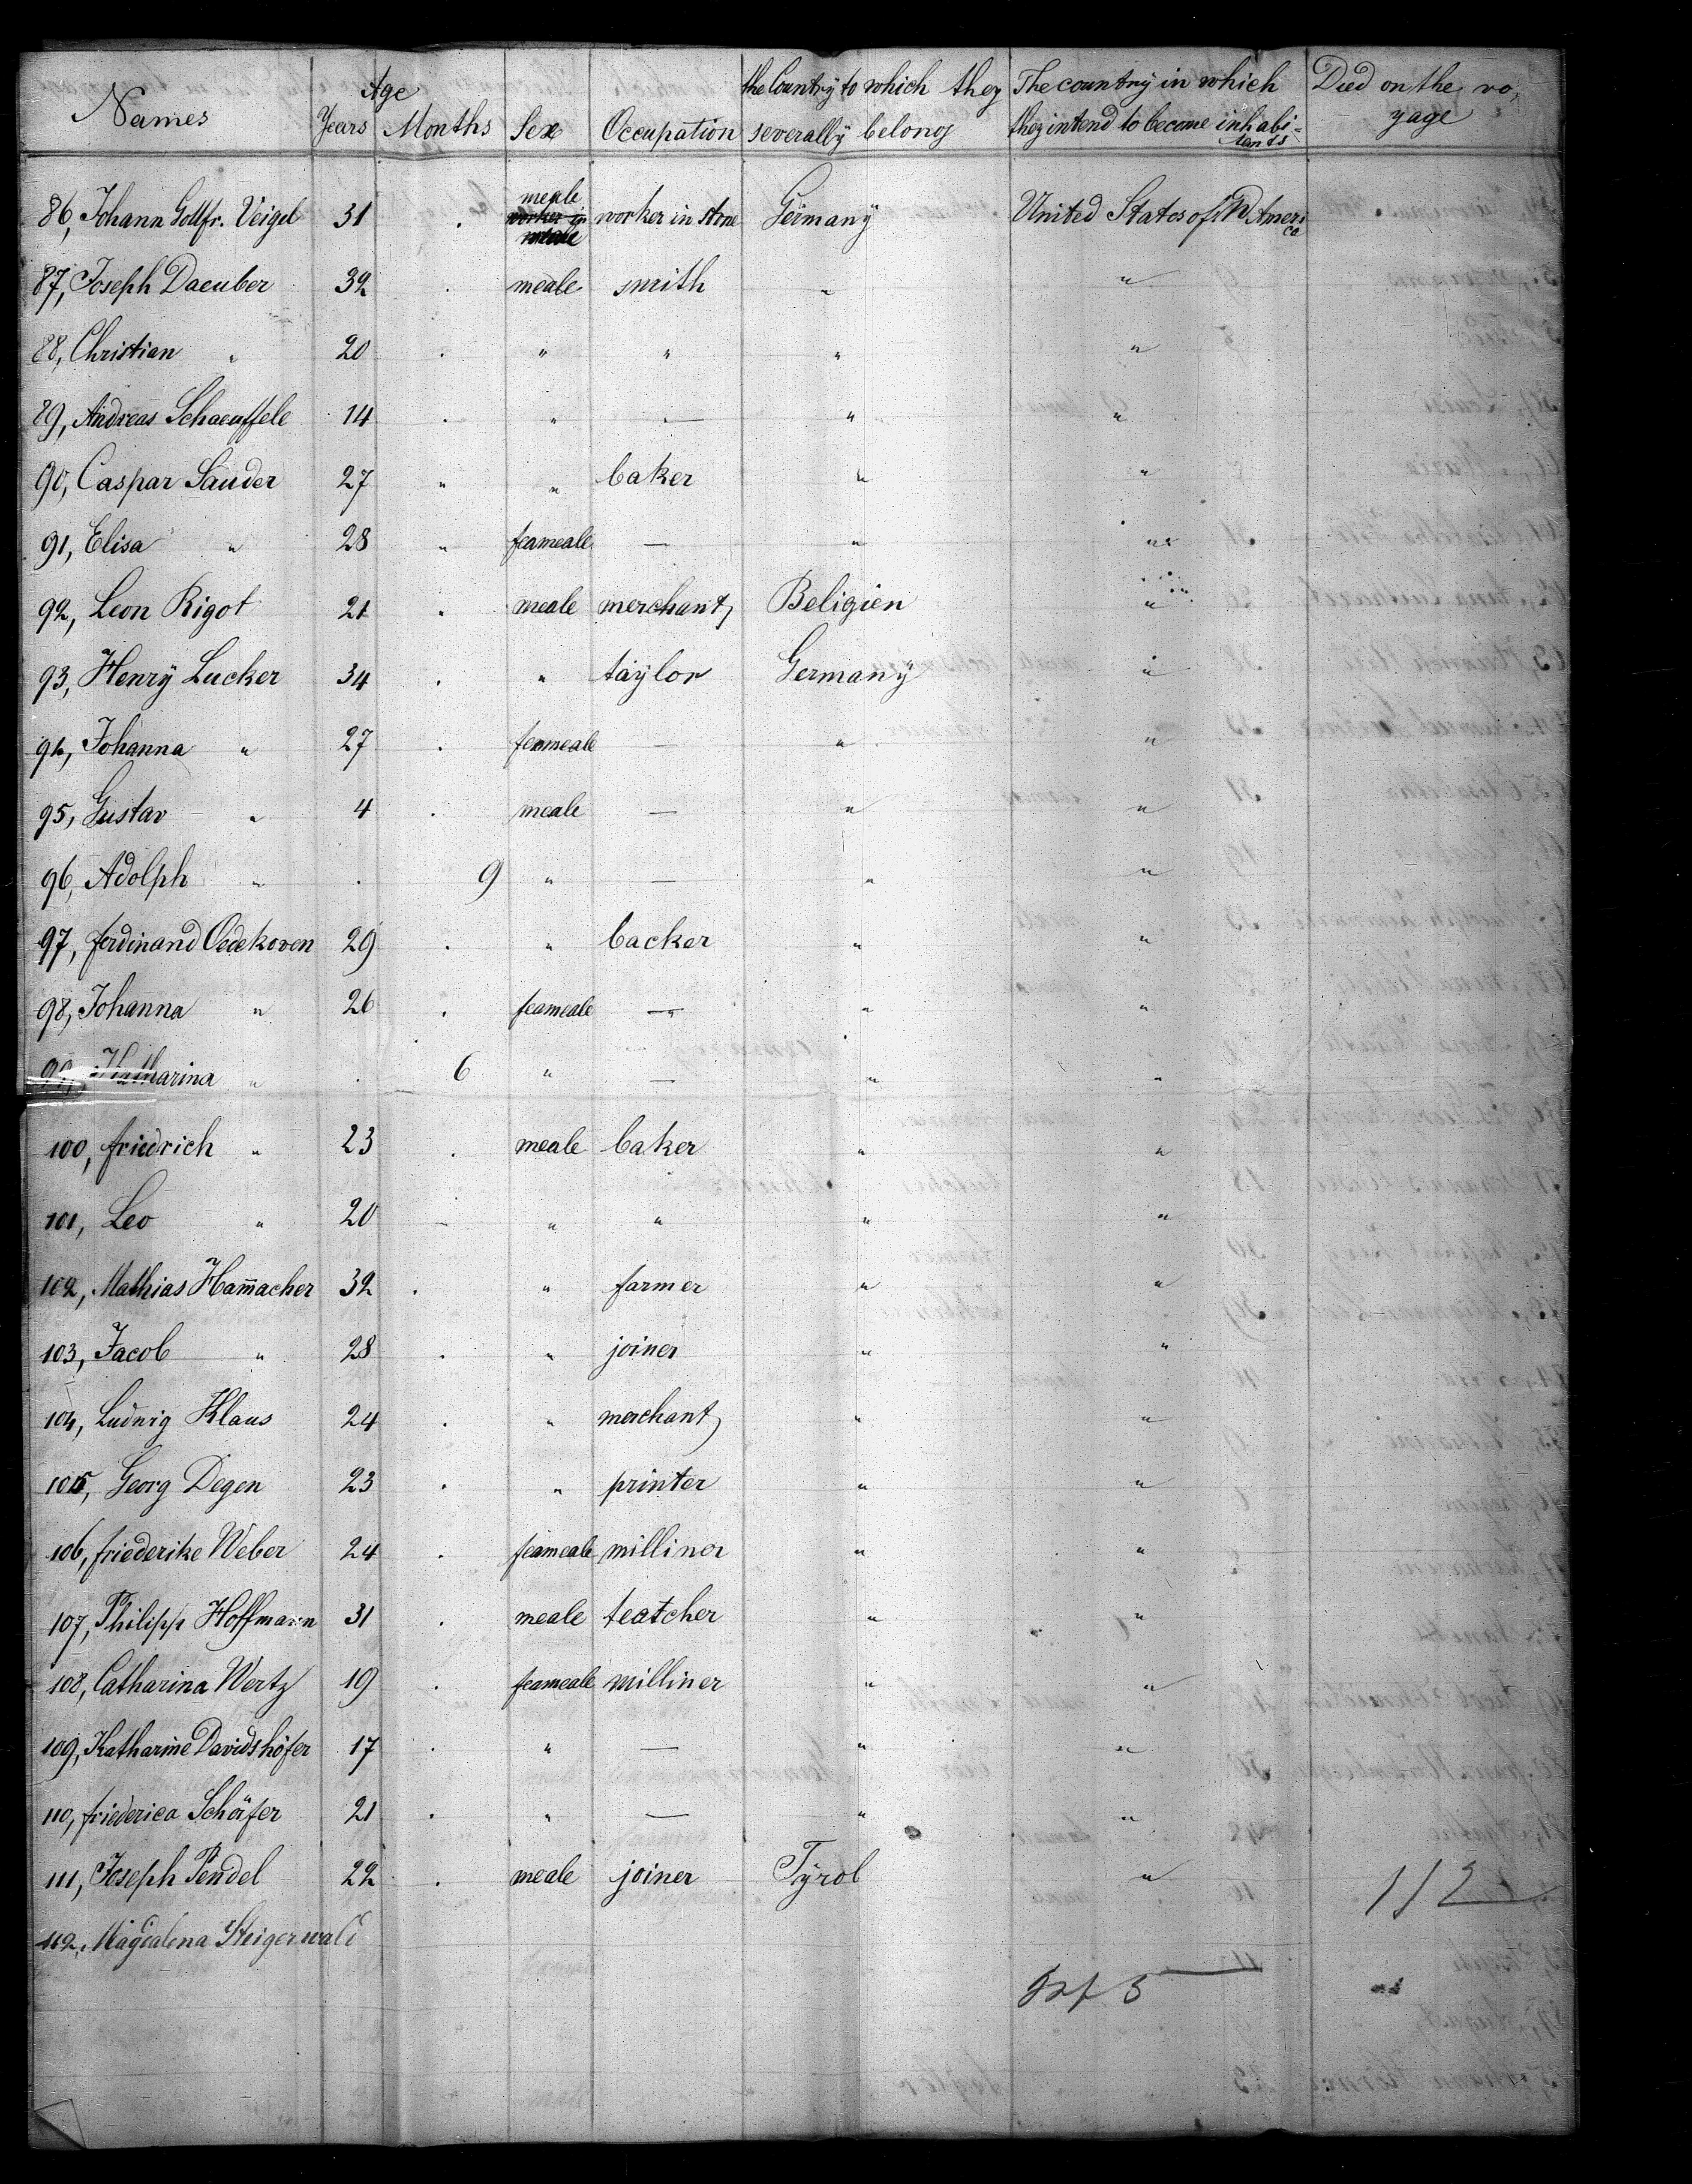 Names Age Years Months Sex Occupation the Country to which they severally belong The country in which they intend to become inhabi= tants Died on the vo, yage
86, Johann Gottfr. Veigel 31 . meale worker in stone Germanÿ United States of N Ameri ca
87, Joseph Daeuber 32 . meale smith " "
88, Christian " 20 . " " " "
89, Andreas Schaeuffele 14 . " — " "
90, Caspar Sauder 27 " " baker " "
91, Elisa " 28 " feameale — " "
92, Leon Rigot 21 " meale merchant Beligien "
93, Henrÿ Lucker 34 . " taÿlor Germanÿ "
94, Johanna " 27 . feameale — " "
95, Gustav " 4 . meale — " "
96, Adolph " . 9 " — " "
97, Ferdinand Oedekoven 29 . " backer " "
98, Johanna " 26 . feameale — " "
99, Katharina " . 6 " — " "
100, Friedrich " 23 . meale baker " "
101, Leo " 20 - " " " "
102, Mathias Ham̄acher 32 . " farmer " "
103, Jacob " 28 . " joiner " "
104, Ludwig Klaus 24 . " merchant " "
105, Georg Degen 23 . " printer " "
106, Friederike Weber 24 . feameale milliner " "
107, Philipp Hoffmann 31 . meale teatcher " "
108, Catharina Wertz 19 . feameale milliner " "
109, Katharine Davidshöfer 17 . " — " "
110, Friederica Schäfer 21 . " — " "
111, Joseph Pendel 22 . meale joiner Tÿrol "
112
112, Magdalena Steigerwald